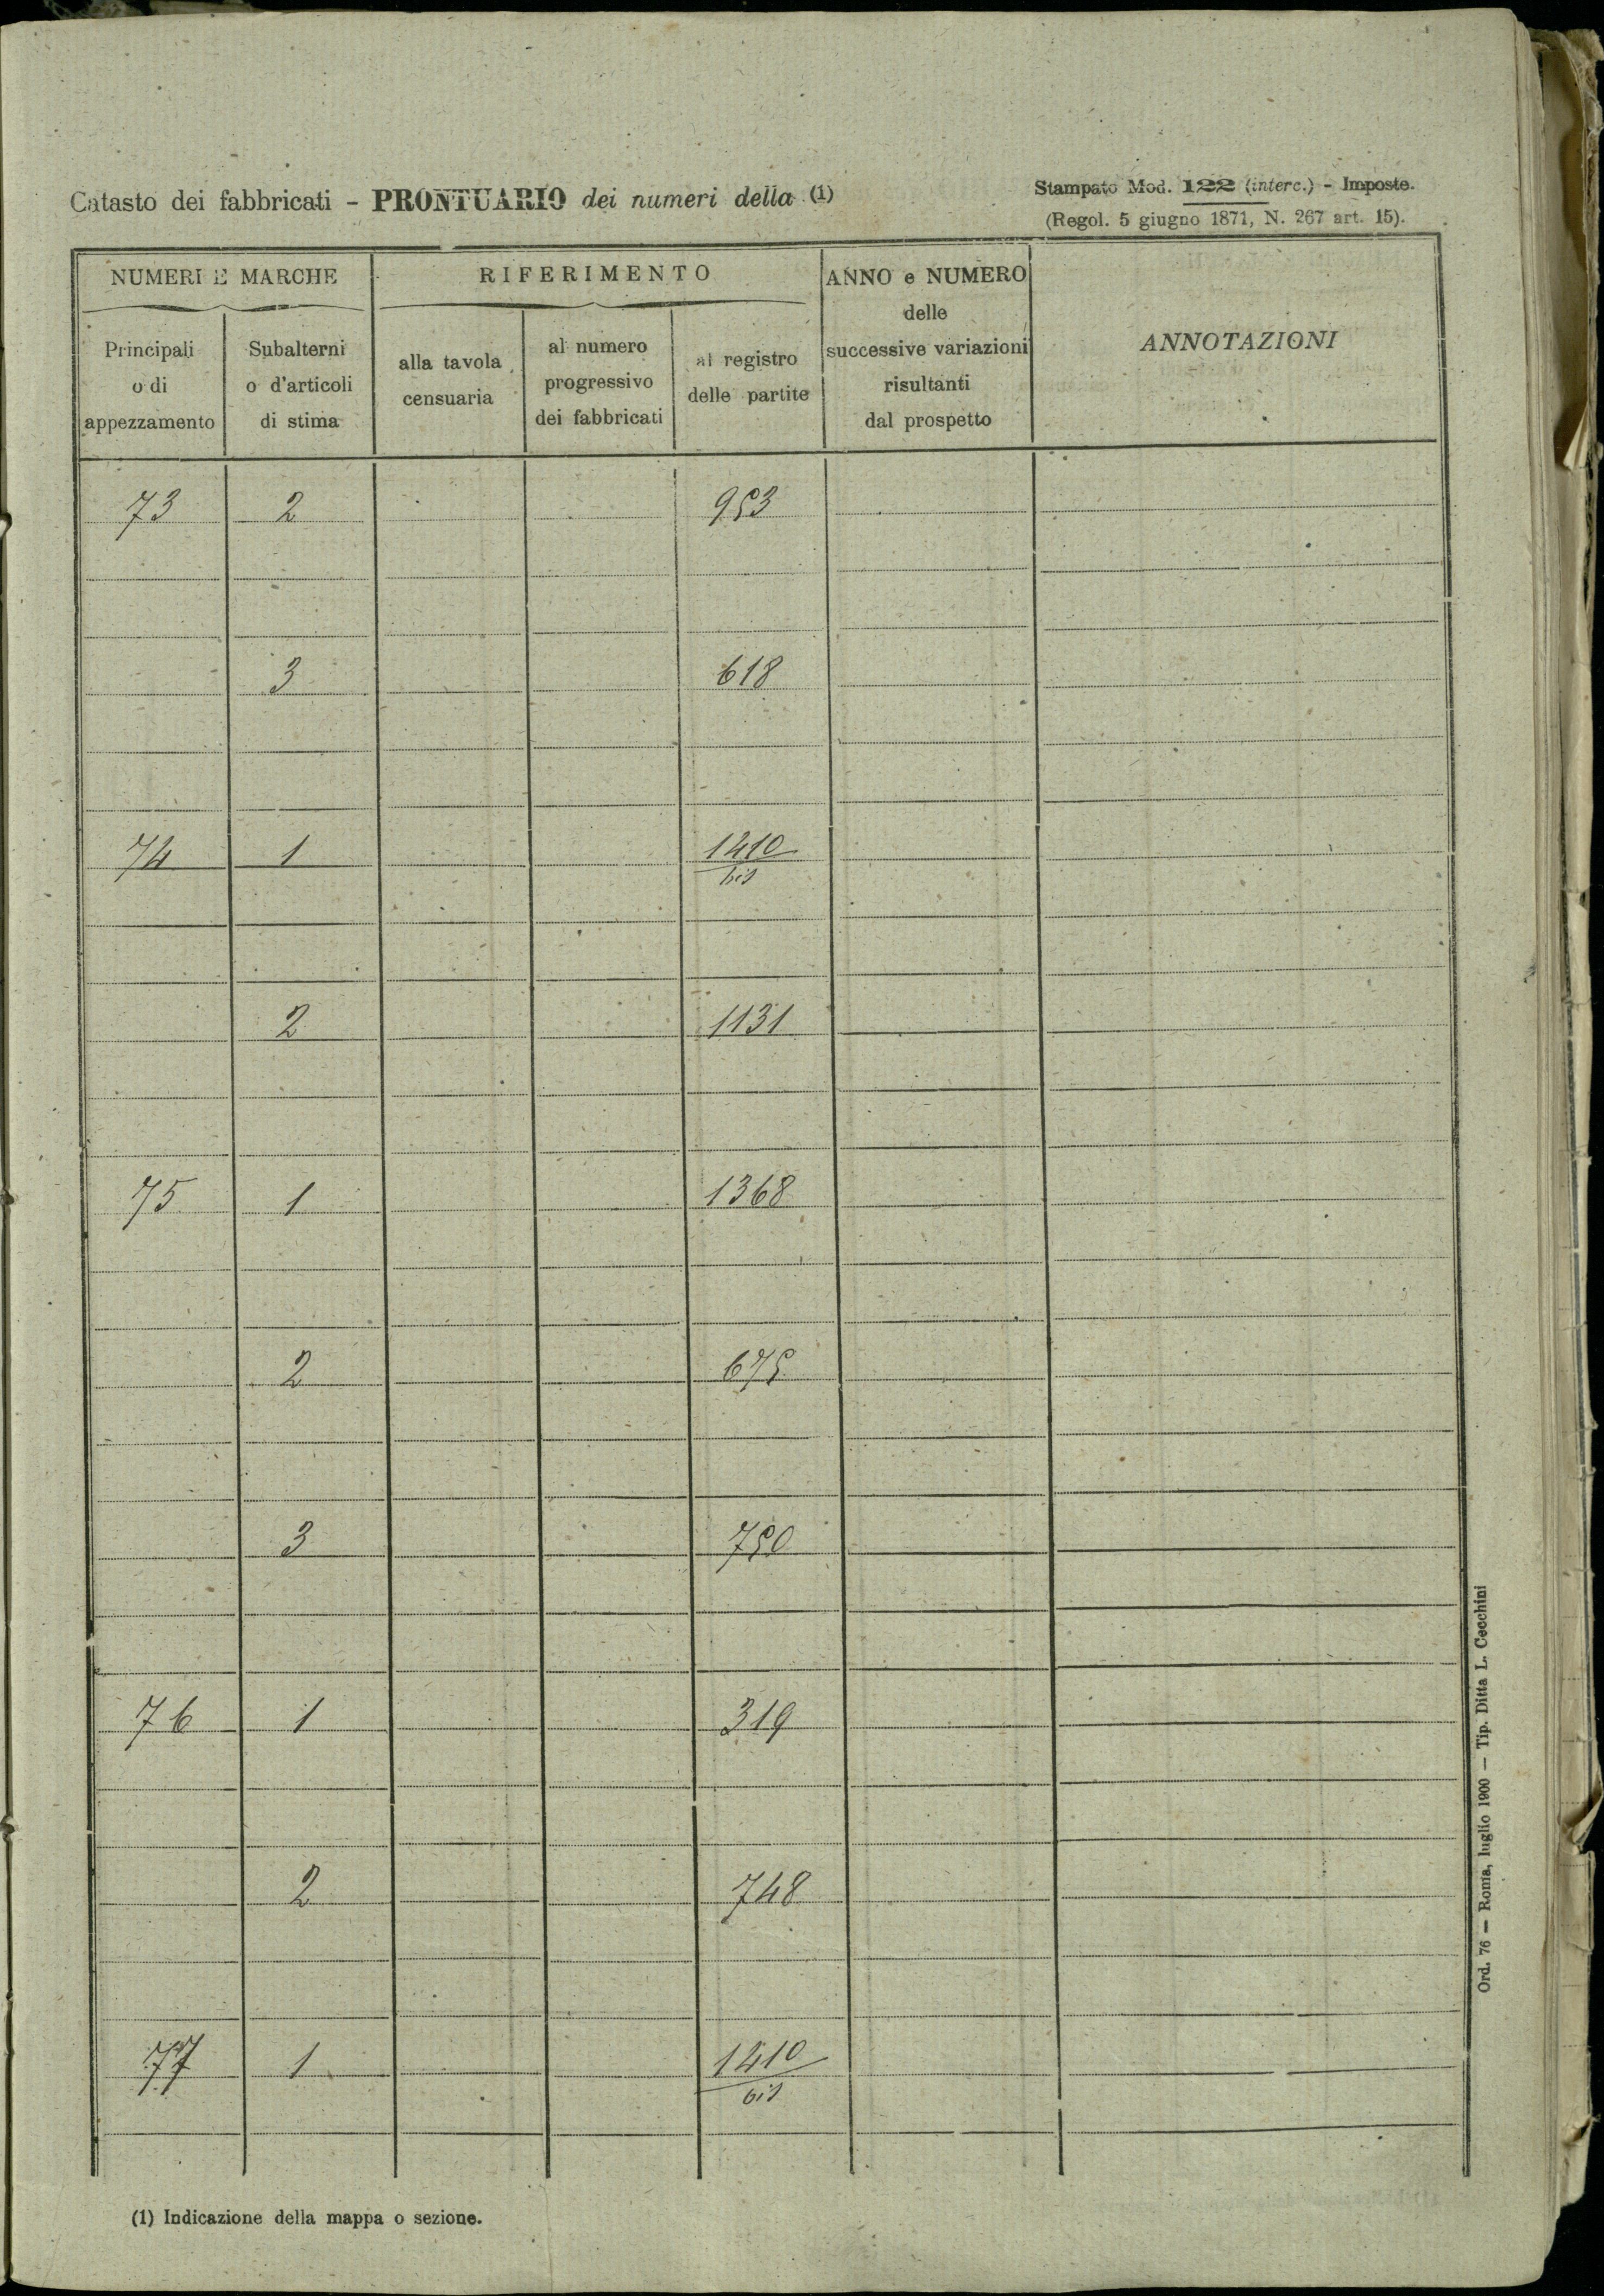 Catasto dei fabbricati - PRONTUARIO dei numeri della (1)
Stampato Mod. 122 (interc.) - Imposte.
(Regol. 5 giugno 1871, N. 267 art. 15).
NUMERI E MARCHE
RIFERIMENTO
ANNO e NUMERO
delle
successive variazioni
risultanti
dal prospetto
ANNOTAZIONI
Principali
o di
appezzamento
Subalterni
o d'articoli
di stima
alla tavola
censuaria
al numero
progressivo
dei fabbricati
al registro
delle partite
73 2 953
3 618
74 1 1410
bis
2 1131
75 1 1368
2 675
3 750
76 1 319
2 748
77 1 1410
bis
(1) Indicazione della mappa o sezione.
Ord. 76 — Roma, luglio 1900 — Tip. Ditta L. Cecchini